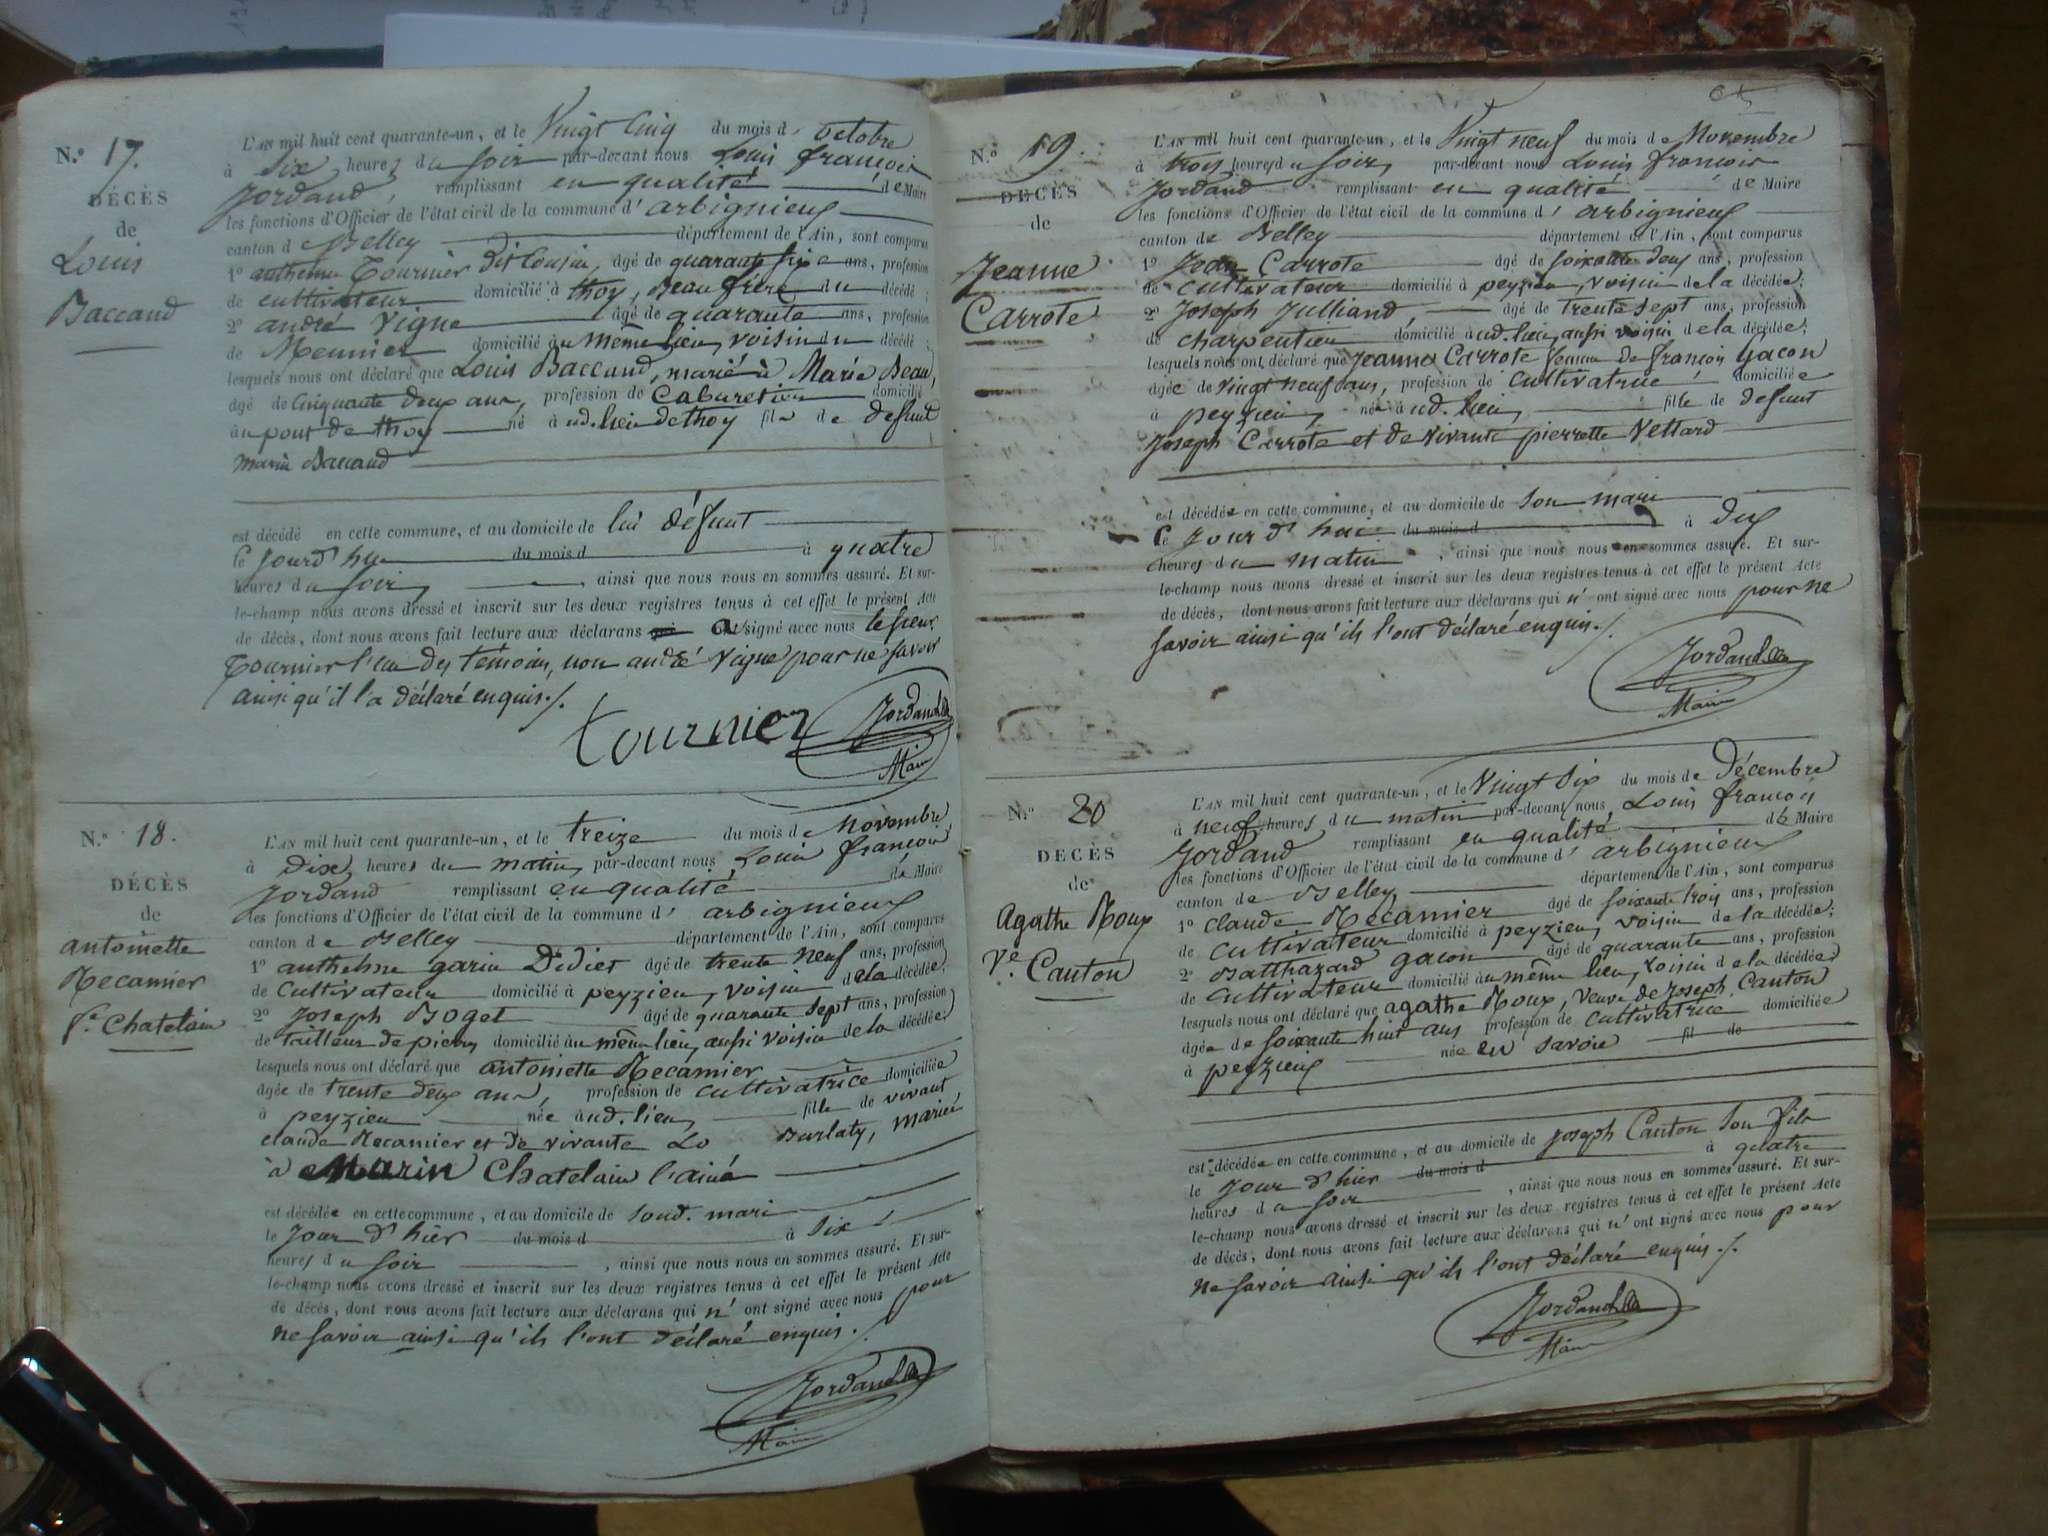 N.o 17.
DÉCÈS
de
Louis
Baccand
L'AN mil huit cent quarante-un, et le Vingt Cinq du mois d' octobre
à Six heures du soir par-devant nous Louis françois
Jordand, remplissant en qualité de Maire
les fonctions d'Officier de l'état civil de la commune d' arbignieux
canton de Belley département de l'Ain, sont comparus
1o anthelme Tournier dit Cousin, âgé de quarante six ans, profession
de cultivateur domicilié à thoy, Beau frère du décédé;
2o andré Vigne âgé de quarante ans, profession
de Meunier domicilié au même lieu, voisin du décédé;
lesquels nous ont déclaré que Louis Baccand, marié à Marie Beau,
âgé de Cinquante deux ans, profession de Cabaretier domicilié
au pont de thoy né à ud. lieu de thoy fils de défunt
Marin Baccand
est décédé en cette commune, et au domicile de lui défunt
le jourd'hui du mois d à quatre
heures du soir, ainsi que nous nous en sommes assuré. Et sur-
le-champ nous avons dressé et inscrit sur les deux registres tenus à cet effet le présent Acte
de décès, dont nous avons fait lecture aux déclarans a signé avec nous le sieur
Tournier l'un des témoins, non andré Vigne pour ne savoir
ainsi qu'il l'a déclaré enquis./.
tournier Jordand
Maire
N.o 18.
DÉCÈS
de
antoinette
Recamier
fe. Chatelain
L'AN mil huit cent quarante-un, et le treize du mois de Novembre
à Dix heures du matin, par-devant nous Louis françois
Jordand remplissant en qualité de Maire
les fonctions d'Officier de l'état civil de la commune d' arbignieux
canton de Belley département de l'Ain, sont comparus
1o anthelme garin Didier âgé de trente neuf ans, profession
de Cultivateur domicilié à peyzieu, voisin de la décédée;
2o Joseph Boget âgé de quarante sept ans, profession
de tailleur de pierres domicilié au même lieu, aussi voisin de la décédée;
lesquels nous ont déclaré que antoinette Recamier
âgée de trente deux ans, profession de cultivatrice domiciliée
à peyzieu née à ud. lieu, fille de vivant
claude Recamier et de vivante Burlaty, mariée
à Marin Chatelain l'ainé
est décédée en cette commune, et au domicile de soud. mari
le jour d'hier du mois d à six
heures du soir, ainsi que nous nous en sommes assuré. Et sur-
le-champ nous avons dressé et inscrit sur les deux registres tenus à cet effet le présent Acte
de décès, dont nous avons fait lecture aux déclarans qui n'ont signé avec nous pour
ne savoir ainsi qu'ils l'ont déclaré enquis./.
Jordand
Maire
N.o 19.
DÉCÈS
de
Jeanne
Carrote
L'AN mil huit cent quarante-un, et le Vingt neuf du mois de Novembre
à trois heures du soir, par-devant nous Louis françois
Jordand remplissant en qualité de Maire
les fonctions d'Officier de l'état civil de la commune d' arbignieux
canton de Belley département de l'Ain, sont comparus
1o Jean Carrote âgé de soixante deux ans, profession
de cultivateur domicilié à peyzieu, voisin de la décédée;
2o Joseph Julliand, âgé de trente sept ans, profession
de charpentier domicilié à ud. lieu, aussi voisin de la décédée;
lesquels nous ont déclaré que Jeanne Carrote femme de françois Gacon
âgée de vingt neuf ans, profession de Cultivatrice domiciliée
à peyzieu, née à ud. lieu, fille de défunt
Joseph Carrote et de vivante pierrette Vettard
est décédée en cette commune, et au domicile de son mari
le jour d'hui du mois d à dix
heures du matin, ainsi que nous nous en sommes assuré. Et sur-
le-champ nous avons dressé et inscrit sur les deux registres tenus à cet effet le présent Acte
de décès, dont nous avons fait lecture aux déclarans qui n'ont signé avec nous pour ne
savoir ainsi qu'ils l'ont déclaré enquis./.
Jordand
Maire
N.o 20
DÉCÈS
de
Agathe Roux
Ve. Canton
L'AN mil huit cent quarante-un, et le Vingt Six du mois de Décembre
à neuf heures du matin par-devant nous Louis françois
Jordand remplissant en qualité de Maire
les fonctions d'Officier de l'état civil de la commune d' arbignieux
canton de Belley département de l'Ain, sont comparus
1o claude Recamier âgé de soixante trois ans, profession
de Cultivateur domicilié à peyzieu, voisin de la décédée;
2o Balthazard gacon âgé de quarante ans, profession
de Cultivateur domicilié au même lieu, voisin de la décédée;
lesquels nous ont déclaré que agathe Roux, veuve de Joseph Canton
âgée de soixante huit ans profession de cultivatrice domiciliée
à peyzieux née en Savoie fil de
est décédée en cette commune, et au domicile de Joseph Canton son fils
le jour d'hier du mois d à quatre
heures du soir, ainsi que nous nous en sommes assuré. Et sur-
le-champ nous avons dressé et inscrit sur les deux registres tenus à cet effet le présent Acte
de décès, dont nous avons fait lecture aux déclarans qui n'ont signé avec nous pour
ne savoir ainsi qu'ils l'ont déclaré enquis./.
Jordand
Maire